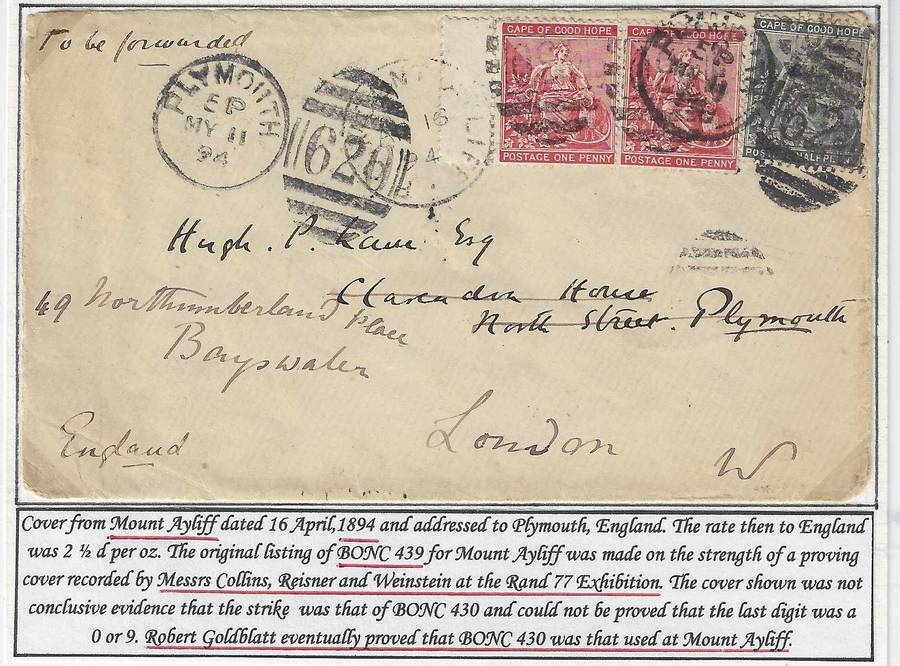 To be forwarded
PLYMOUTH
EP
MY 11
94
620
16
94
CAPE OF GOOD HOPE
POSTAGE ONE PENNY
CAPE OF GOOD HOPE
POSTAGE ONE PENNY
CAPE OF GOOD HOPE
Hugh. P. Esq
Clarendon House
North Street. Plymouth
49 Northumberland Place
Bayswater
London
W
England
Cover from Mount Ayliff dated 16 April,1894 and addressed to Plymouth, England. The rate then to England
was 2 ½ d per oz. The original listing of BONC 439 for Mount Ayliff was made on the strength of a proving
cover recorded by Messrs Collins, Reisner and Weinstein at the Rand 77 Exhibition. The cover shown was not
conclusive evidence that the strike was that of BONC 430 and could not be proved that the last digit was a
0 or 9. Robert Goldblatt eventually proved that BONC 430 was that used at Mount Ayliff.